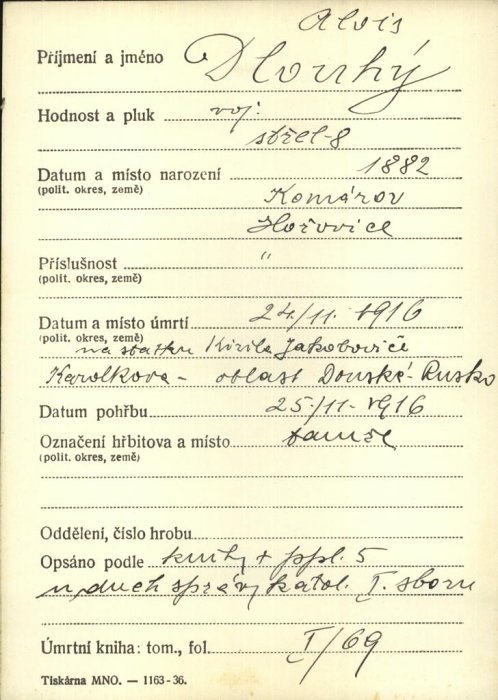 Alois
Příjmení a jméno Dlouhý
Hodnost a pluk voj.
střel-8
Datum a místo narození 1882
(polit. okres, země) Komárov
Hořovice
Příslušnost "
(polit. okres, země)
Datum a místo úmrtí 24/11. 1916
(polit. okres, země)
na statku Kirila Jakoboviče
Karolkova - oblast Donská - Rusko
Datum pohřbu 25/11. 1916
Označení hřbitova a místo tamže
(polit. okres, země)
Oddělení, číslo hrobu
Opsáno podle knihy + ppl. 5
duch správy katol. I. sboru
Úmrtní kniha: tom., fol. I/69
Tiskárna MNO. — 1163-36.